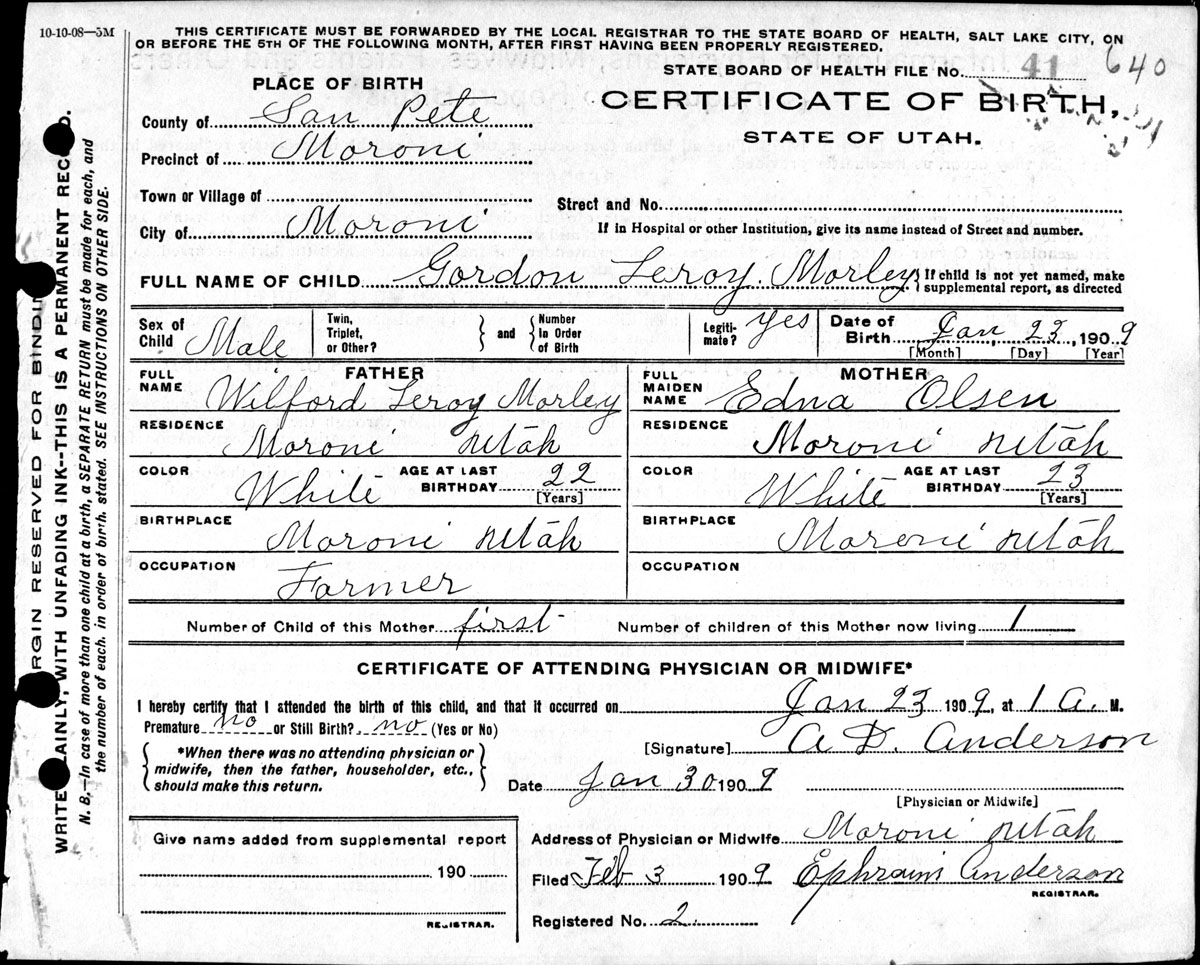 10-10-08—5M
THIS CERTIFICATE MUST BE FORWARDED BY THE LOCAL REGISTRAR TO THE STATE BOARD OF HEALTH, SALT LAKE CITY, ON
OR BEFORE THE 5TH OF THE FOLLOWING MONTH, AFTER FIRST HAVING BEEN PROPERLY REGISTERED.
STATE BOARD OF HEALTH FILE No. 41 640
PLACE OF BIRTH
CERTIFICATE OF BIRTH,
STATE OF UTAH.
County of San Pete
Precinct of Moroni
Town or Village of
Street and No.
City of Moroni
If in Hospital or other Institution, give its name instead of Street and number.
FULL NAME OF CHILD Gordon Leroy Morley { If child is not yet named, make
supplemental report, as directed
Sex of Child Male
Twin, Triplet, or Other? } and { Number in Order of Birth
Legiti- mate? yes
Date of Birth Jan, 23, 1909
[Month] [Day] [Year]
FATHER
FULL NAME Wilford Leroy Morley
RESIDENCE Moroni Utah
COLOR White
AGE AT LAST BIRTHDAY 22
[Years]
BIRTHPLACE Moroni Utah
OCCUPATION Farmer
MOTHER
FULL MAIDEN NAME Edna Olsen
RESIDENCE Moroni Utah
COLOR White
AGE AT LAST BIRTHDAY 23
[Years]
BIRTHPLACE Moroni Utah
OCCUPATION
Number of Child of this Mother first Number of children of this Mother now living 1
CERTIFICATE OF ATTENDING PHYSICIAN OR MIDWIFE*
I hereby certify that I attended the birth of this child, and that it occurred on Jan 23 1909, at 1 a. M.
Premature no or Still Birth? no (Yes or No)
{ *When there was no attending physician or
midwife, then the father, householder, etc.,
should make this return. }
[Signature] A D. Anderson
Date Jan 30 1909
[Physician or Midwife]
Give name added from supplemental report
190
REGISTRAR.
Address of Physician or Midwife Moroni Utah
Filed Feb 3 1909 Ephraim Anderson
REGISTRAR.
Registered No. 2
RGIN RESERVED FOR BINDIN
WRITE LAINLY, WITH UNFADING INK--THIS IS A PERMANENT REC D.
N. B.—In case of more than one child at a birth, a SEPARATE RETURN must be made for each, and
the number of each, in order of birth, stated. SEE INSTRUCTIONS ON OTHER SIDE.